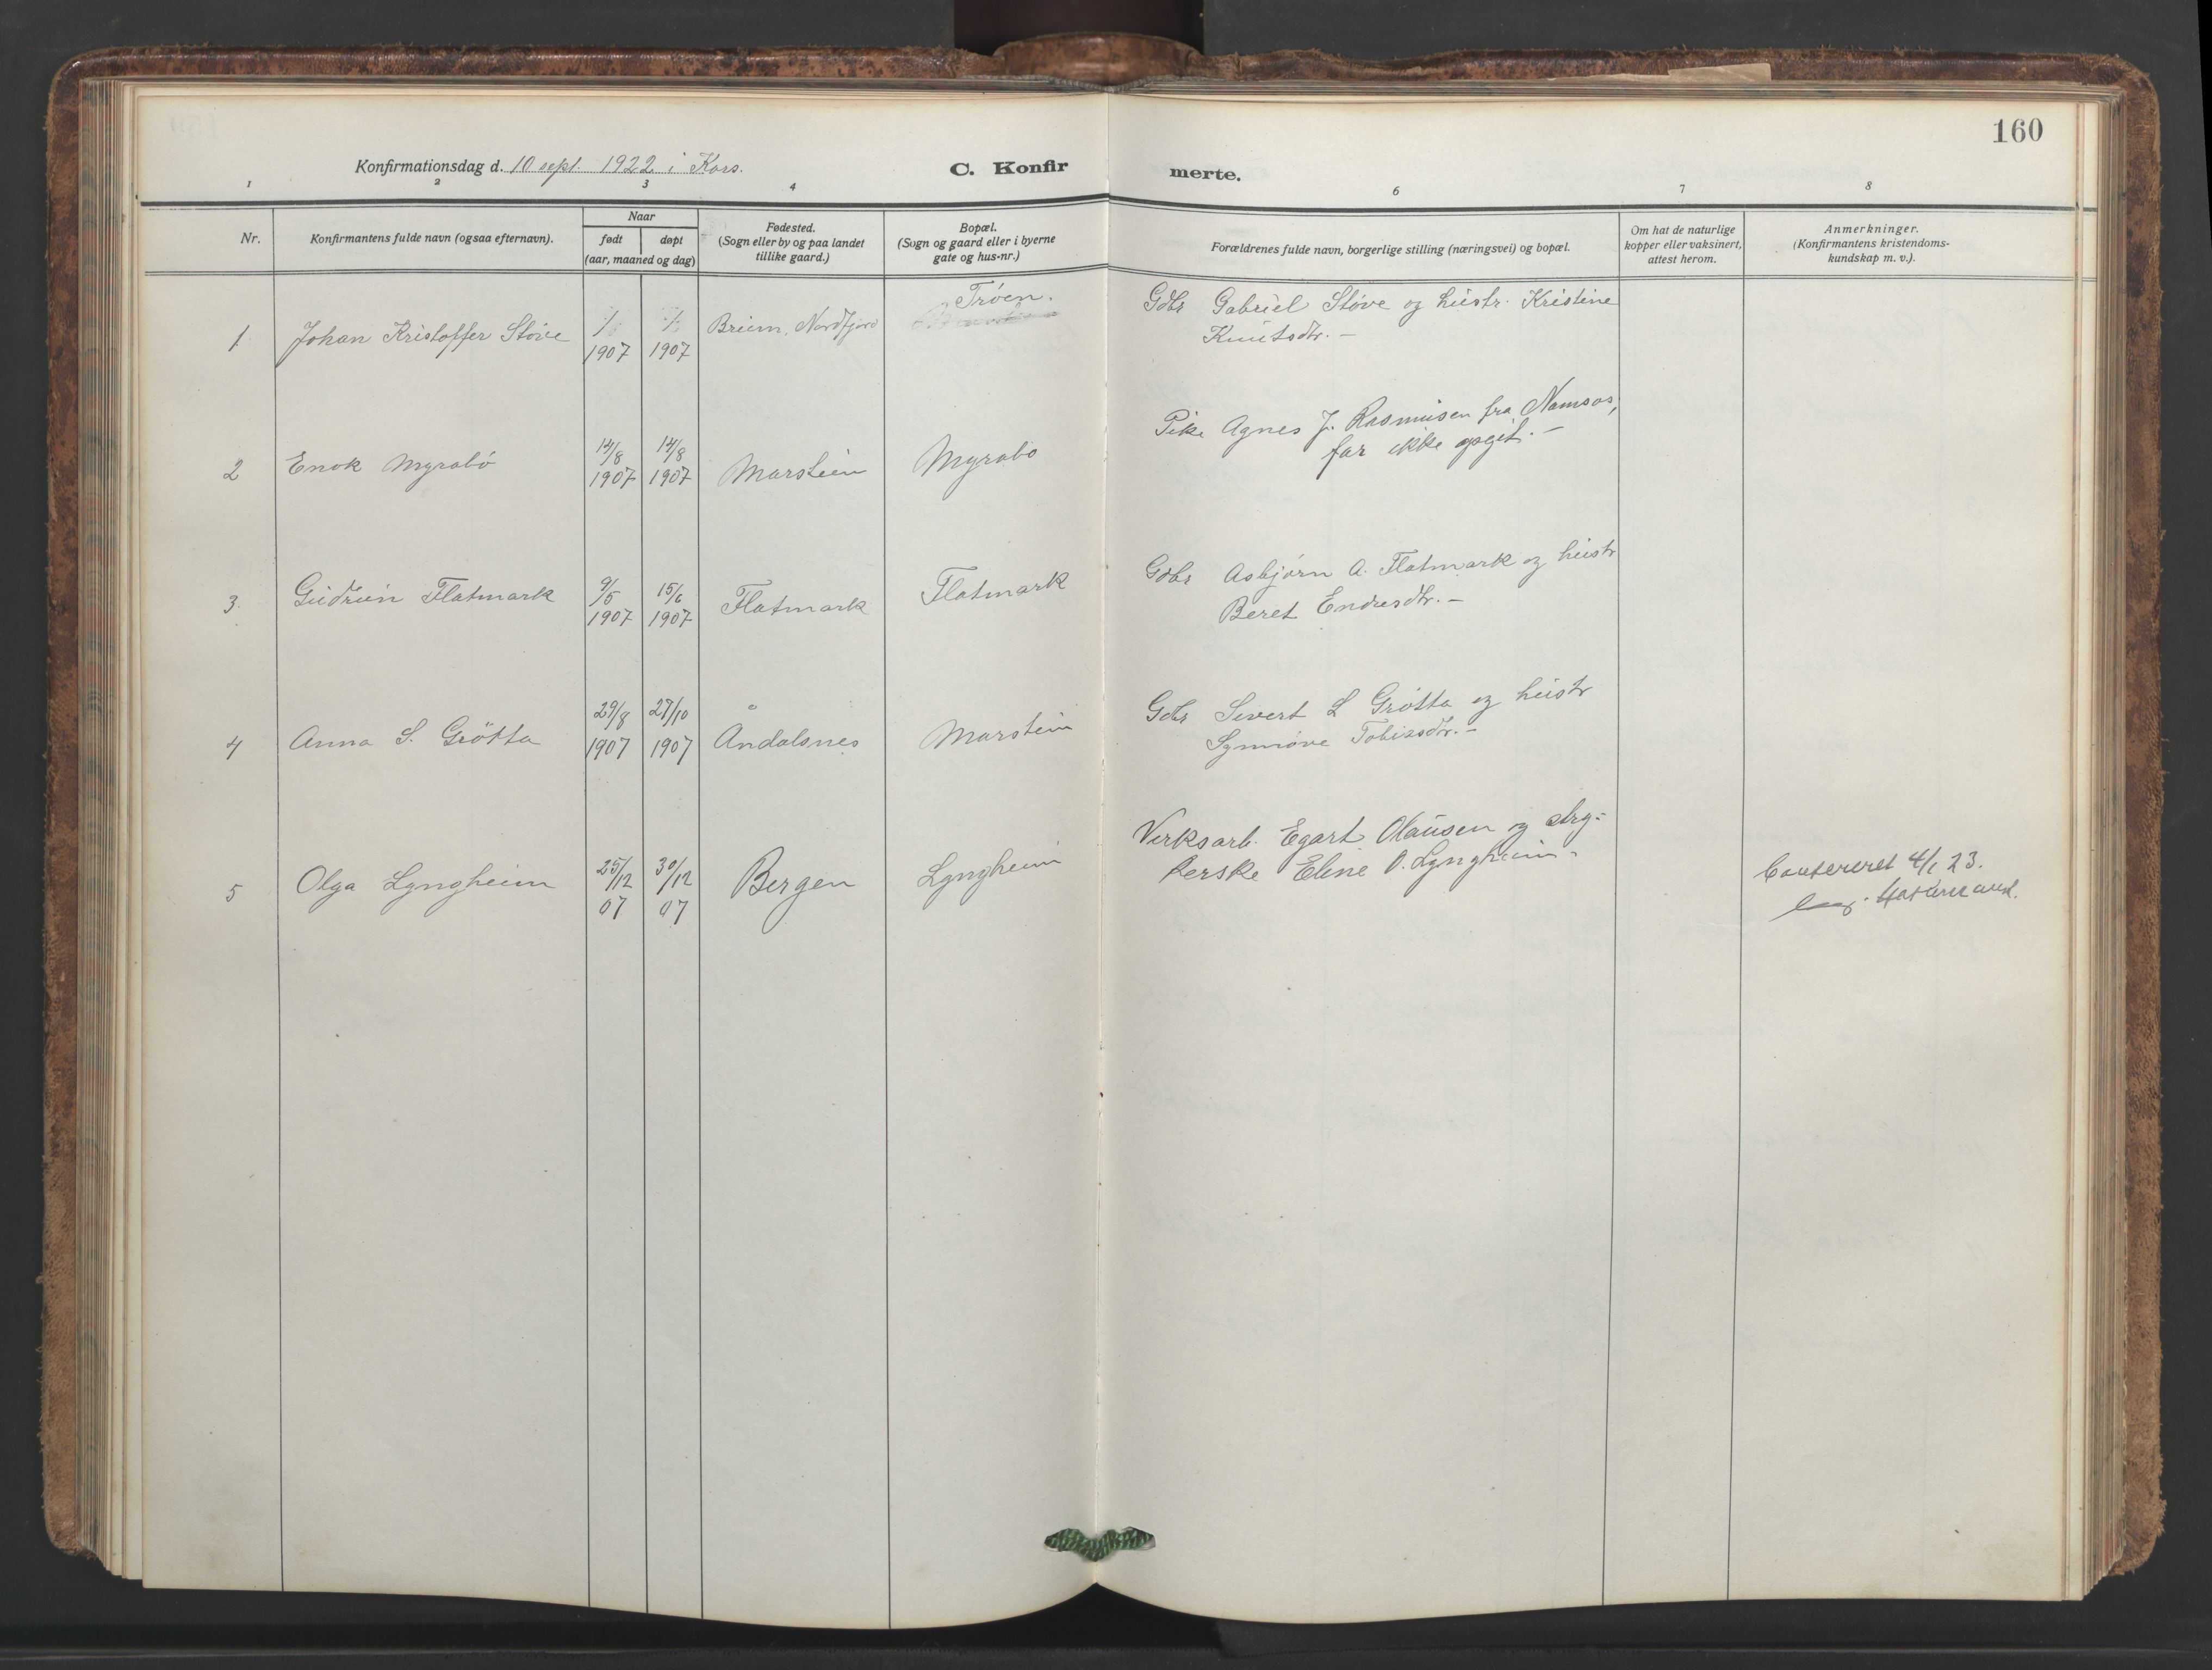 160
Konfirmationsdag d. 10 sept. 1922 i Kors.
C. Konfir
merte.
1 2 3 4 6 7 8
Nr.
Konfirmantens fulde navn (ogsaa efternavn).
Naar
født døpt
(aar, maaned og dag)
Fødested.
(Sogn eller by og paa landet
tillike gaard.)
Bopæl.
(Sogn og gaard eller i byerne
gate og hus-nr.)
Forældrenes fulde navn, borgerlige stilling (næringsvei) og bopæl.
Om hat de naturlige
kopper eller vaksinert,
attest herom.
Anmerkninger.
(Konfirmantens kristendoms-
kundskap m. v.).
Trøen.
1 Johan Kristoffer Støve / / Breim, Nordfjord
1907 1907
Gdbr Gabriel Støve og hustr. Kristine
Knutsdtr. —
2 Enok Myrabö 14/8 14/8 Marstein Myrabö
1907 1907
Pike Agnes J. Rasmusen fra Namsos,
far ikke opgit. —
3. Gudrun Flatmark 9/5 15/6 Flatmark Flatmark
1907 1907
Gdbr Asbjørn A. Flatmark og hustr
Beret Endresdtr. —
4 Anna S. Grötta 29/8 27/10 Åndalsnes Marstein
1907 1907
Gdbr Sivert L Grötta og hustr
Synnøve Tobiasdtr. —
5 Olga Lyngheim 25/12 30/12 Bergen Lyngheim
07 07
Verksarb. Egart Olausen og stry-
kerske Eline O. Lyngheim.
4/1 23.